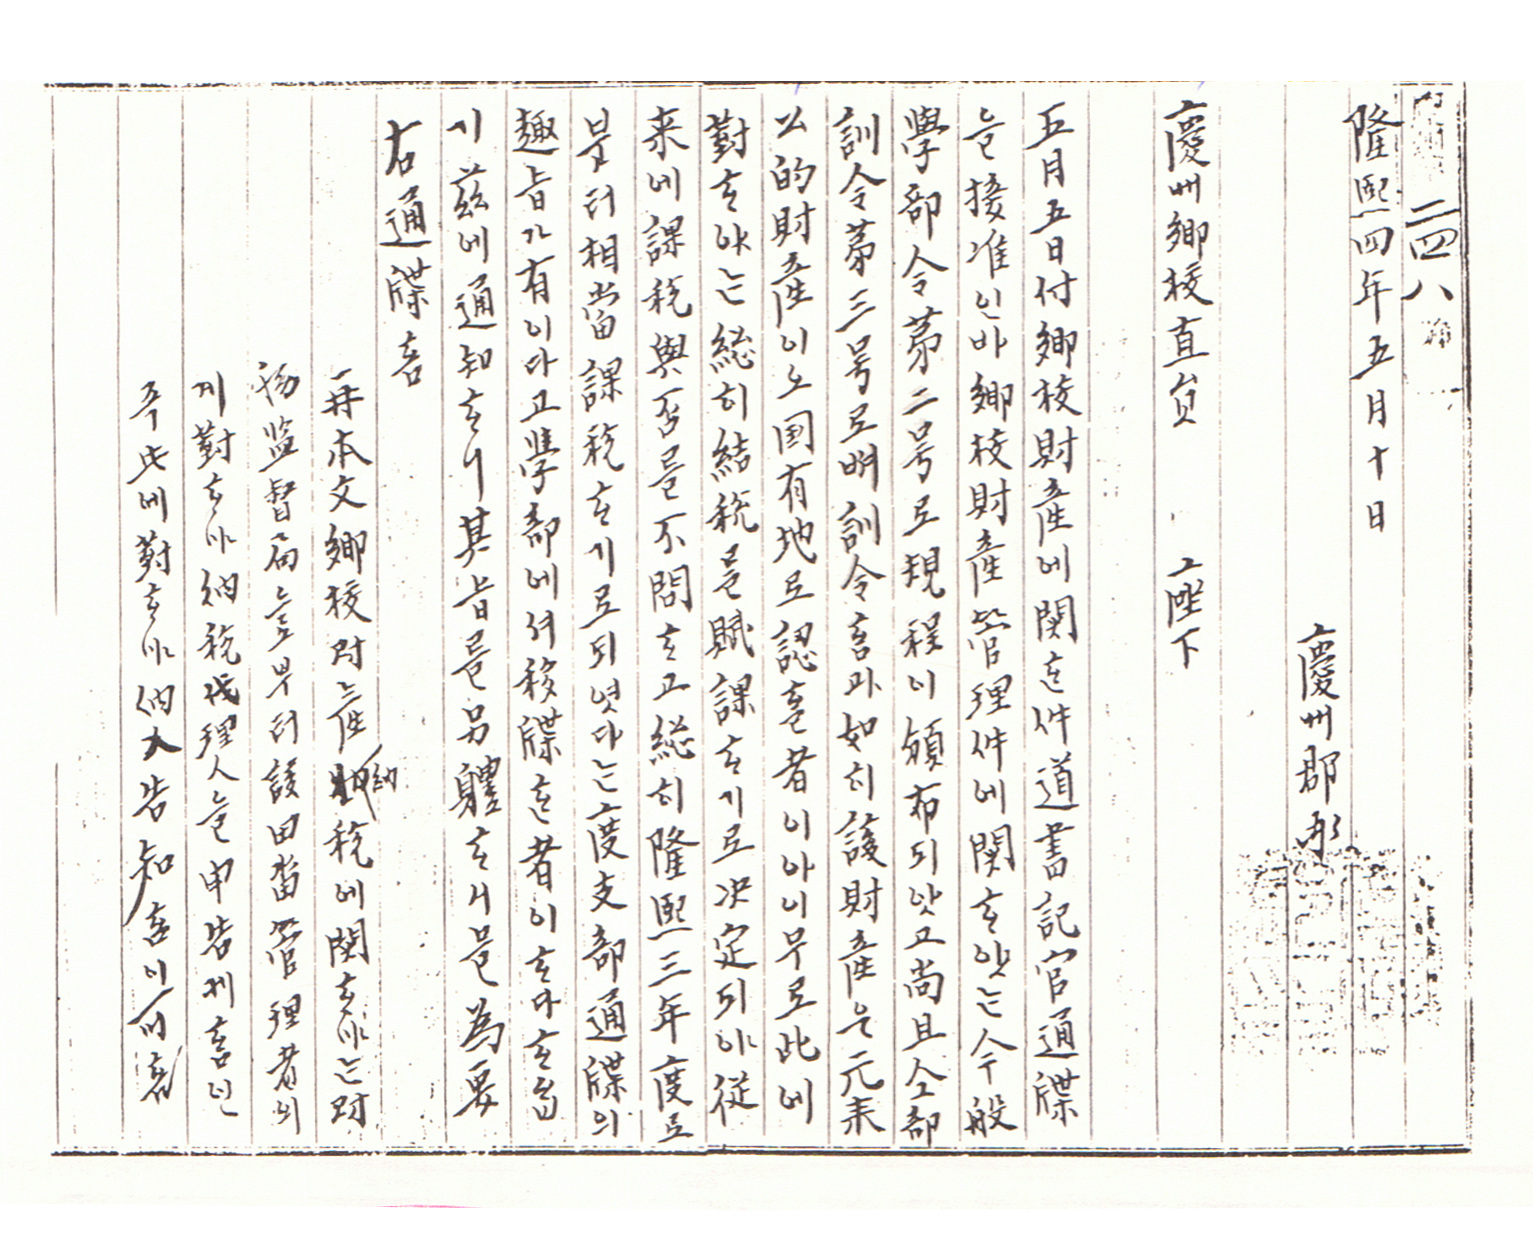 二四八
隆熙四年五月十日
慶州郡
慶州鄕校直員 座下
五月五日付鄕校財産에関ᄒᆞᆫ件道書記官通牒
을接准인바鄕校財産管理件에関ᄒᆞ얏ᄂᆞᆫ今般
學部令第二号로規程이頒布되얏고尚且仝部
訓令第三号로써訓令ᄒᆞᆷ과如히該財産은元来
公的財産이오国有地로認ᄒᆞᆯ者이아이무로此에
對ᄒᆞ야ᄂᆞᆫ総히結稅를賦課ᄒᆞ기로决定되야従
来에課稅與否를不問ᄒᆞ고総히隆熙三年度로
븟터相當課稅ᄒᆞ기로되엿다ᄂᆞᆫ度支部通牒의
趣旨가有이다고學部에셔移牒ᄒᆞᆫ者이ᄒᆞ다ᄒᆞ슴
기玆에通知ᄒᆞ니其旨를另軆ᄒᆞ시믈為要
右通牒ᄒᆞᆷ
再本文鄕校財産納稅에関ᄒᆞ야ᄂᆞᆫ財
務監督局으로부터該田畓管理者의
게對ᄒᆞ야納稅代理人을申告케ᄒᆞᆷ인
주此에對ᄒᆞ야納入告知ᄒᆞᆷ이